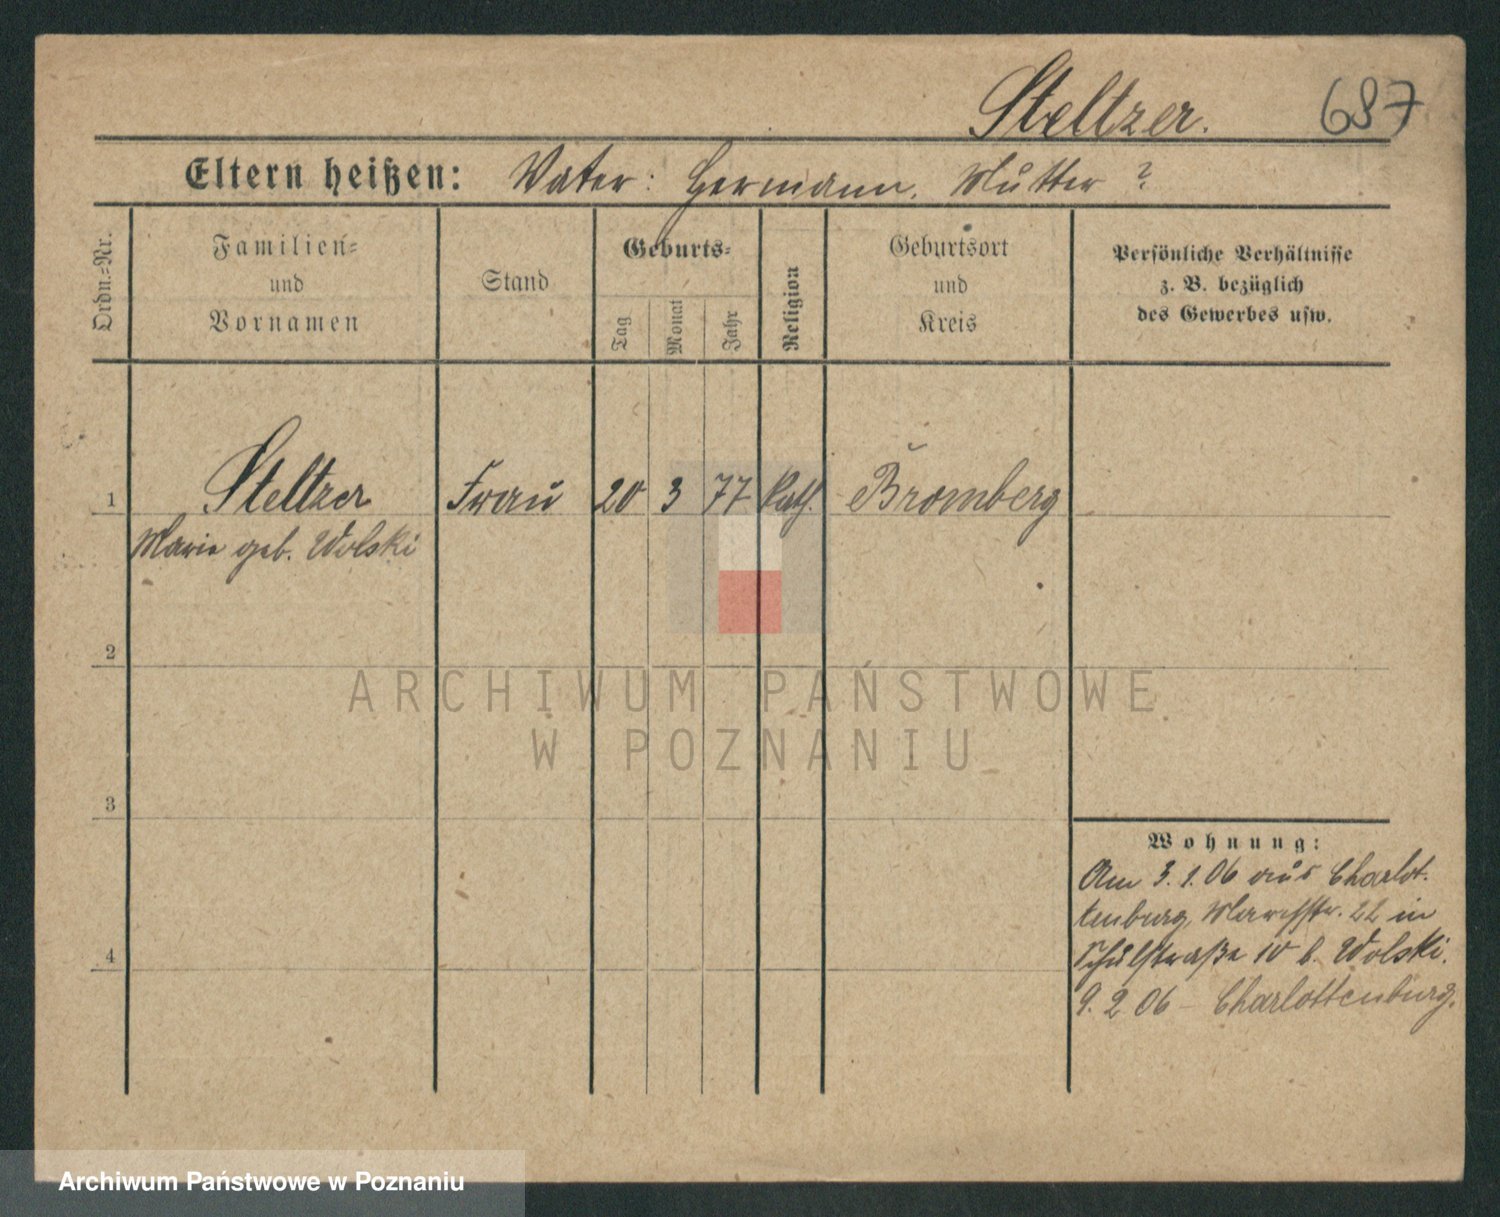 Steltzer. 687
Eltern heißen: Vater: Hermann. Mutter ?
Ordn.=Nr.
Familien=
und
Vornamen
Stand
Geburts=
Tag
Monat
Jahr
Religion
Geburtsort
und
Kreis
Persönliche Verhältnisse
z. B. bezüglich
des Gewerbes usw.
1 Steltzer Frau 20 3 77 kath. Bromberg
Marie geb. Wolski
2
3
4
Wohnung:
Am 3.1.06 aus Charlot-
tenburg, Marchstr. 22 in
Schulstraße 10 b. Wolski.
9. 2 06 – Charlottenburg.
ARCHIWUM PAŃSTWOWE
W POZNANIU
Archiwum Państwowe w Poznaniu